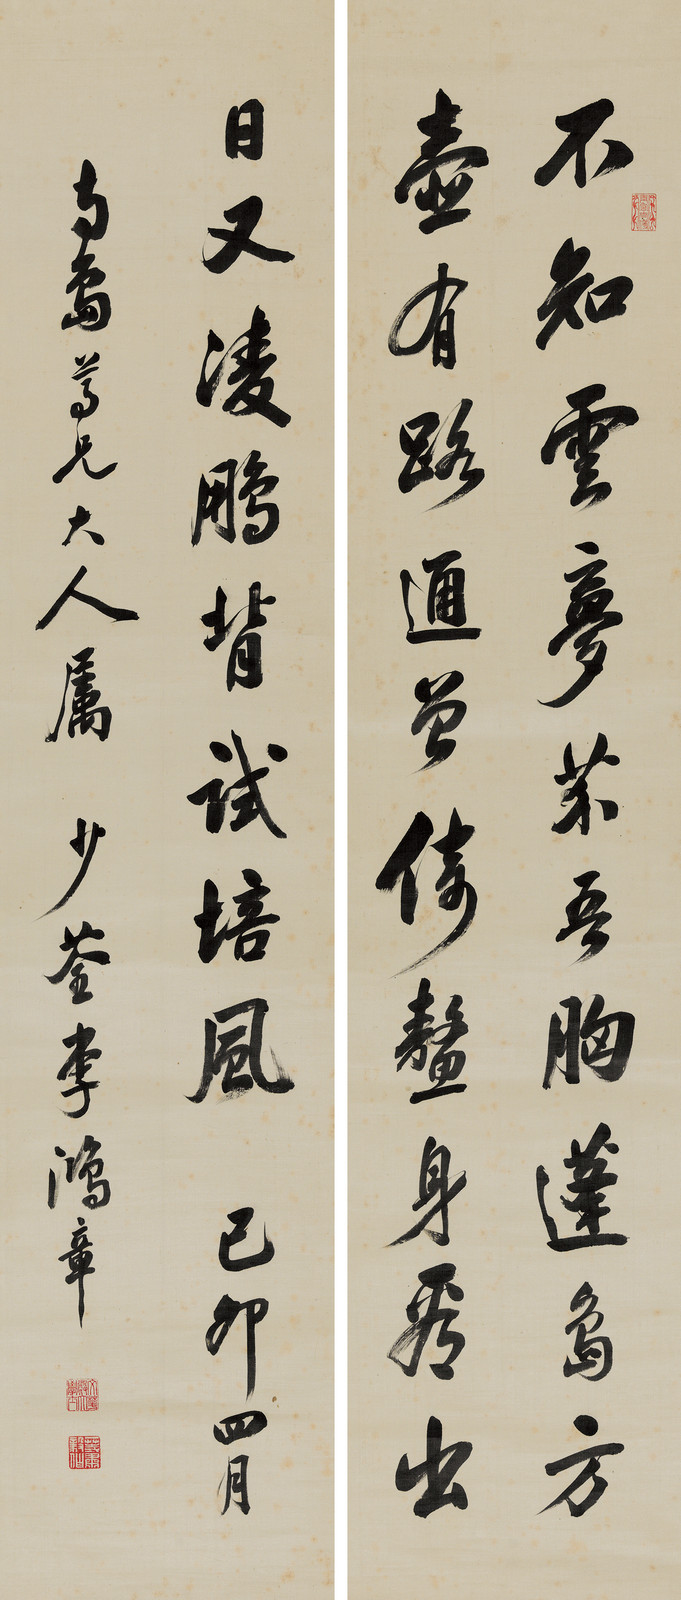 不知雲夢芥吾胸蓬島方
壺有路通曾倚鼇身看出
日又凌鵬背試培風 己卯四月
尊兄大人属 少荃李鴻章